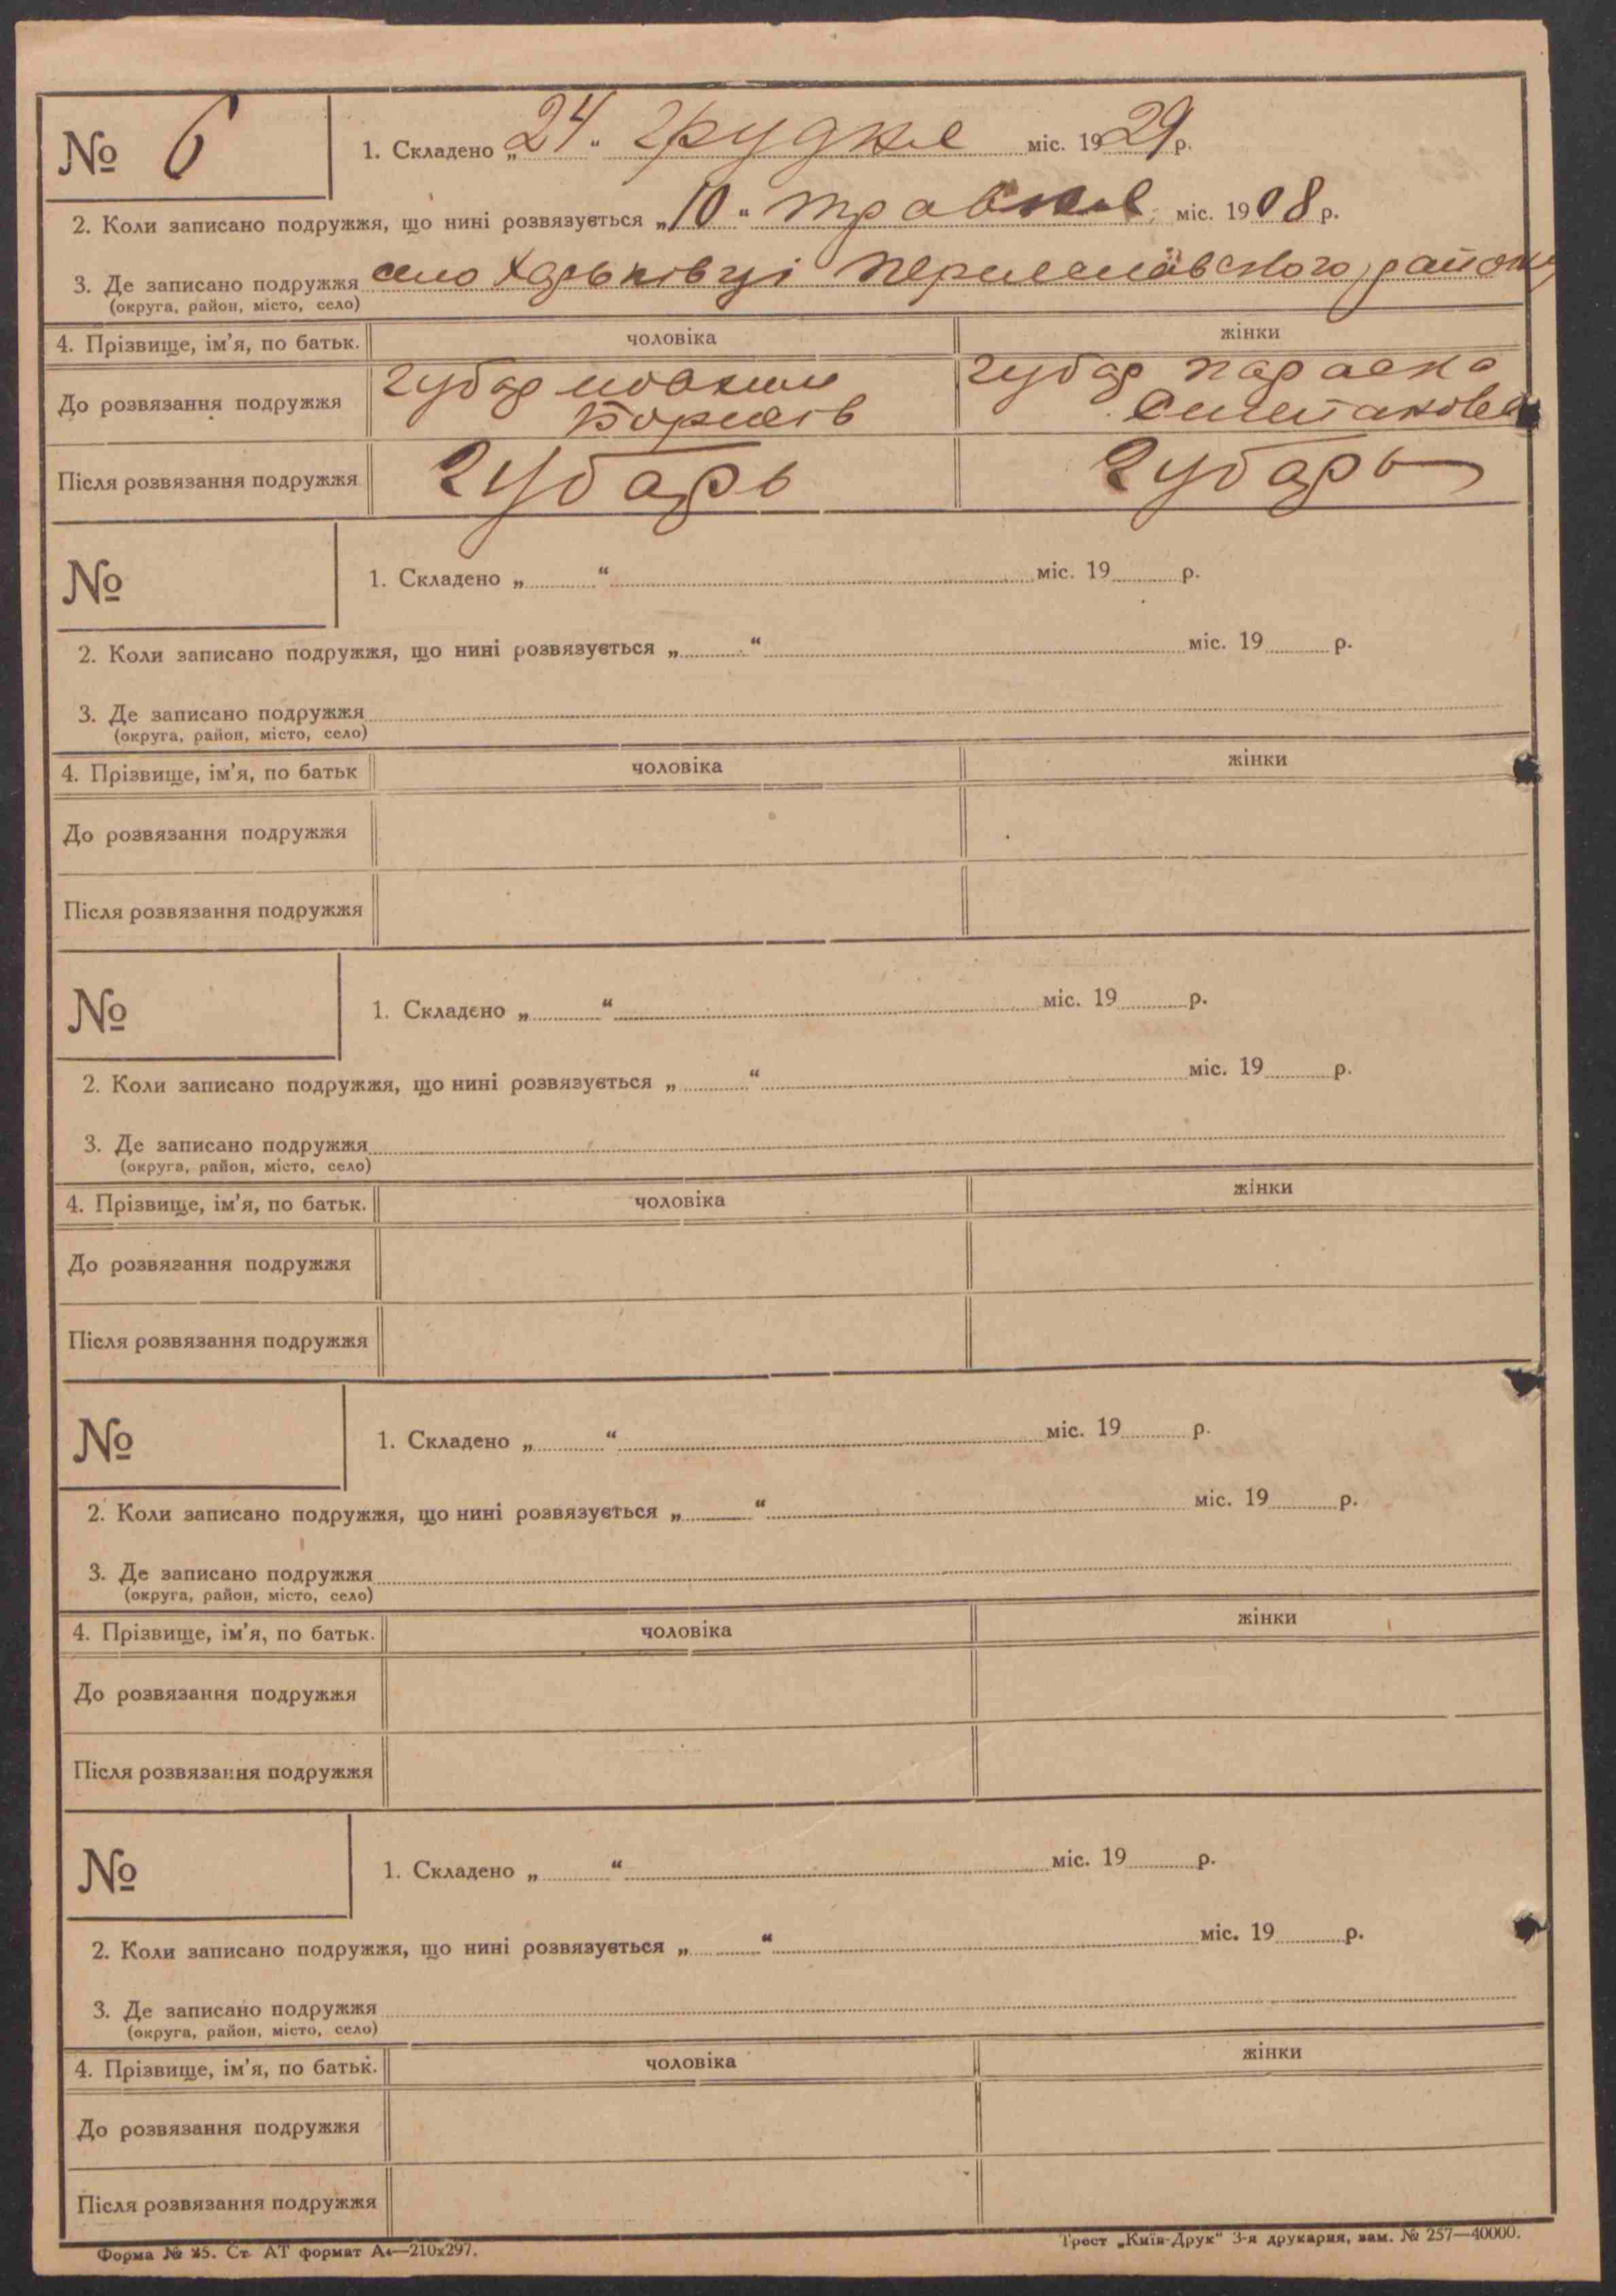 № 6
1. Складено „24“ грудня міс. 1929 р.
2. Коли записано подружжя, що нині розвязується „10“ травня міс. 1908 р.
3. Де записано подружжя село Харьківці район
(округа, район, місто, село)
4. Прізвище, ім’я, по батьк. чоловіка жінки
До розвязання подружжя Губар Губар Параска
Після розвязання подружжя Губарь Губарь
№
1. Складено „ “ міс. 19 р.
2. Коли записано подружжя, що нині розвязується „ “ міс. 19 р.
3. Де записано подружжя
(округа, район, місто, село)
4. Прізвище, ім’я, по батьк чоловіка жінки
До розвязання подружжя
Після розвязання подружжя
№
1. Складено „ “ міс. 19 р.
2. Коли записано подружжя, що нині розвязується „ “ міс. 19 р.
3. Де записано подружжя
(округа, район, місто, село)
4. Прізвище, ім’я, по батьк. чоловіка жінки
До розвязання подружжя
Після розвязання подружжя
№
1. Складено „ “ міс. 19 р.
2. Коли записано подружжя, що нині розвязується „ “ міс. 19 р.
3. Де записано подружжя
(округа, район, місто, село)
4. Прізвище, ім’я, по батьк. чоловіка жінки
До розвязання подружжя
Після розвязання подружжя
№
1. Складено „ “ міс. 19 р.
2. Коли записано подружжя, що нині розвязується „ “ міс. 19 р.
3. Де записано подружжя
(округа, район, місто, село)
4. Прізвище, ім’я, по батьк. чоловіка жінки
До розвязання подружжя
Після розвязання подружжя
Форма № Ст. АТ формат А4—210х297. Трест „Київ-Друк“ 3-я друкарня, зам. № 257—40000.